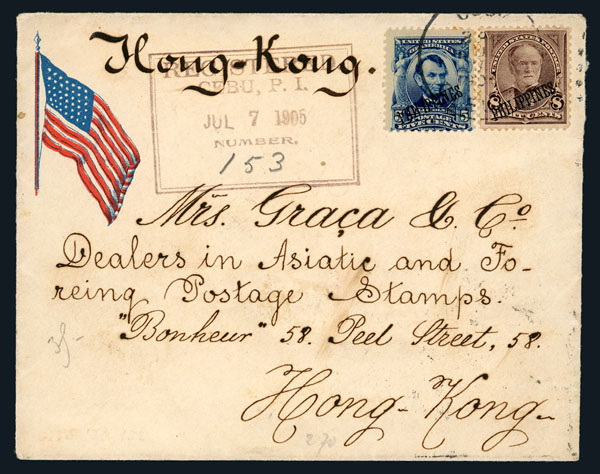 Hong-Kong.
REGISTERED
CEBU, P. I.
JUL 7 1905
NUMBER.
153
UNITED STATES
OF AMERICA
PHILIPPINES
5 POSTAGE 5
FIVE CENTS
PHILIPPINES
8 CENTS 8
Mrs. Graça & Co.
Dealers in Asiatic and Fo-
reing Postage Stamps.
"Bonheur" 58. Peel Street, 58.
Hong-Kong.
270